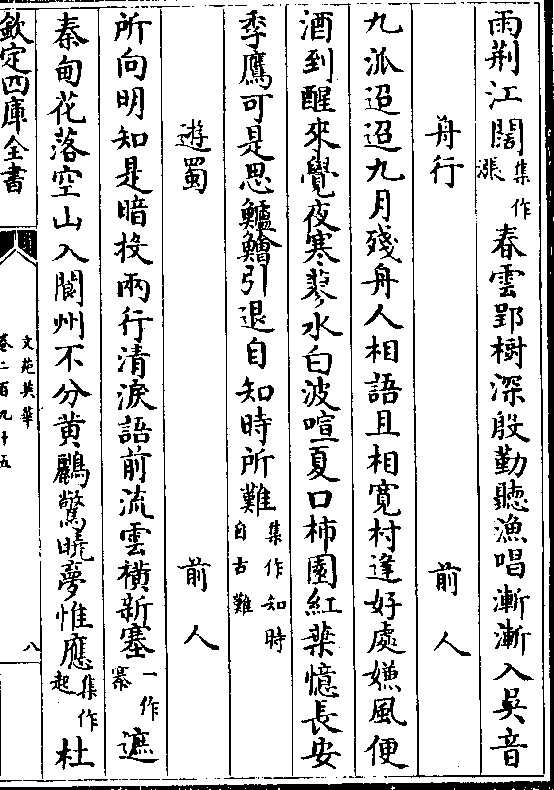 雨荆江闊集作漲春雲郢樹深殷勤聽漁唱漸漸入吳音
舟行 前人
九派迢迢九月殘舟人相語且相寛村逢好處嫌風便
酒到醒來覺夜寒蓼水白波喧夏口柿園紅葉憶長安
季鷹可是思鱸鱠引退自知時所難集作知時自古難
遊蜀 前人
所向明知是暗投兩行清淚語前流雲横新塞一作寨遮
秦甸花落空山入閬州不分黄鸝驚曉夢惟應集作起杜
欽定四庫全書
文苑英華
卷二百九十五
八